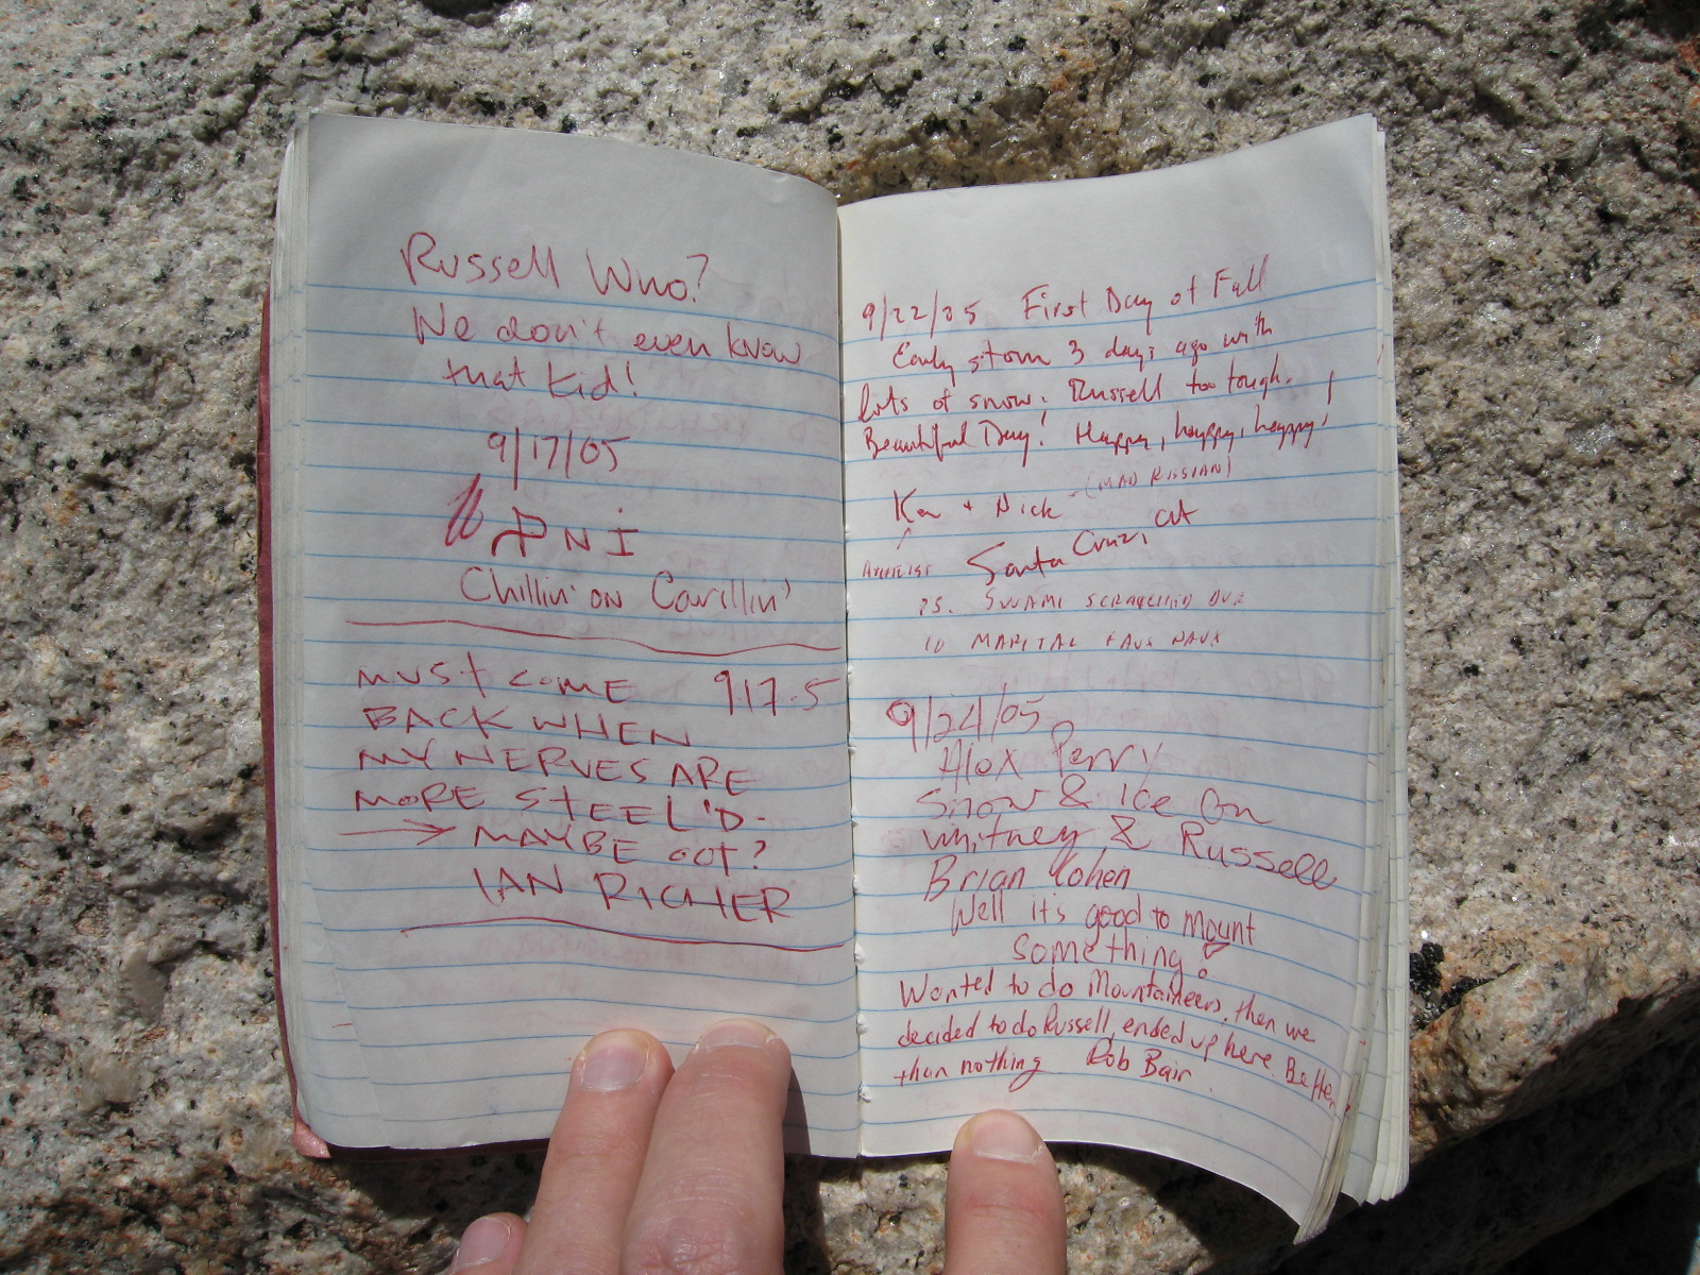 Russell Who?
We don't even know
that kid!
9/17/05
Chillin' on Carillin'
MUST COME 917.5
BACK WHEN
MY NERVES ARE
MORE STEEL'D.
MAYBE OCT?
IAN RICHER
9/22/05 First Day of Fall
Early storm 3 days ago with
lots of snow. Russell too tough.
Beautiful Day! Happy, happy, happy!
Ken + Nick (MAD RUSSIAN)
Santa Cruz, CA
PS. SWAMI SCRATCHED DUE
TO MARITAL FAUX PAUX
9/24/05
Alex Perry
Snow & Ice On
Whitney & Russell
Brian Cohen
Well it's good to Mount
something!
Wanted to do Mountaineers, then we
decided to do Russell, ended up here. Better
than nothing Rob Bair.